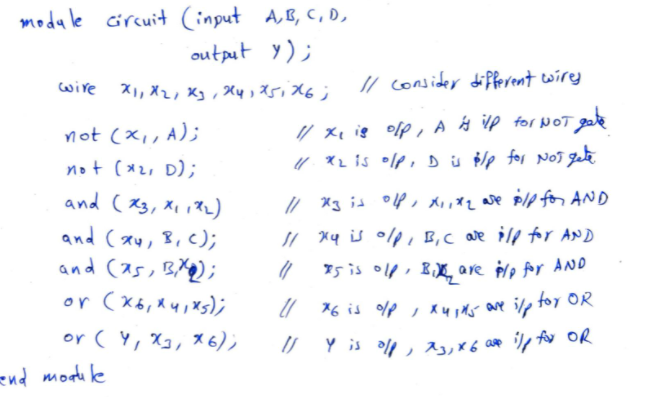 module circuit (input A,B,C,D,
output Y);
wire x1, x2, x3, x4, x5, x6; // consider different wires
not (x1, A); // x1 is o/p, A is i/p for NOT gate
not (x2, D); // x2 is o/p, D is i/p for NOT gate
and (x3, x1, x2) // x3 is o/p, x1, x2 are i/p for AND
and (x4, B, C); // x4 is o/p, B, C are i/p for AND
and (x5, B, x2); // x5 is o/p, B, x2 are i/p for AND
or (x6, x4, x5); // x6 is o/p, x4, x5 are i/p for OR
or (Y, x3, x6); // Y is o/p, x3, x6 are i/p for OR
end module